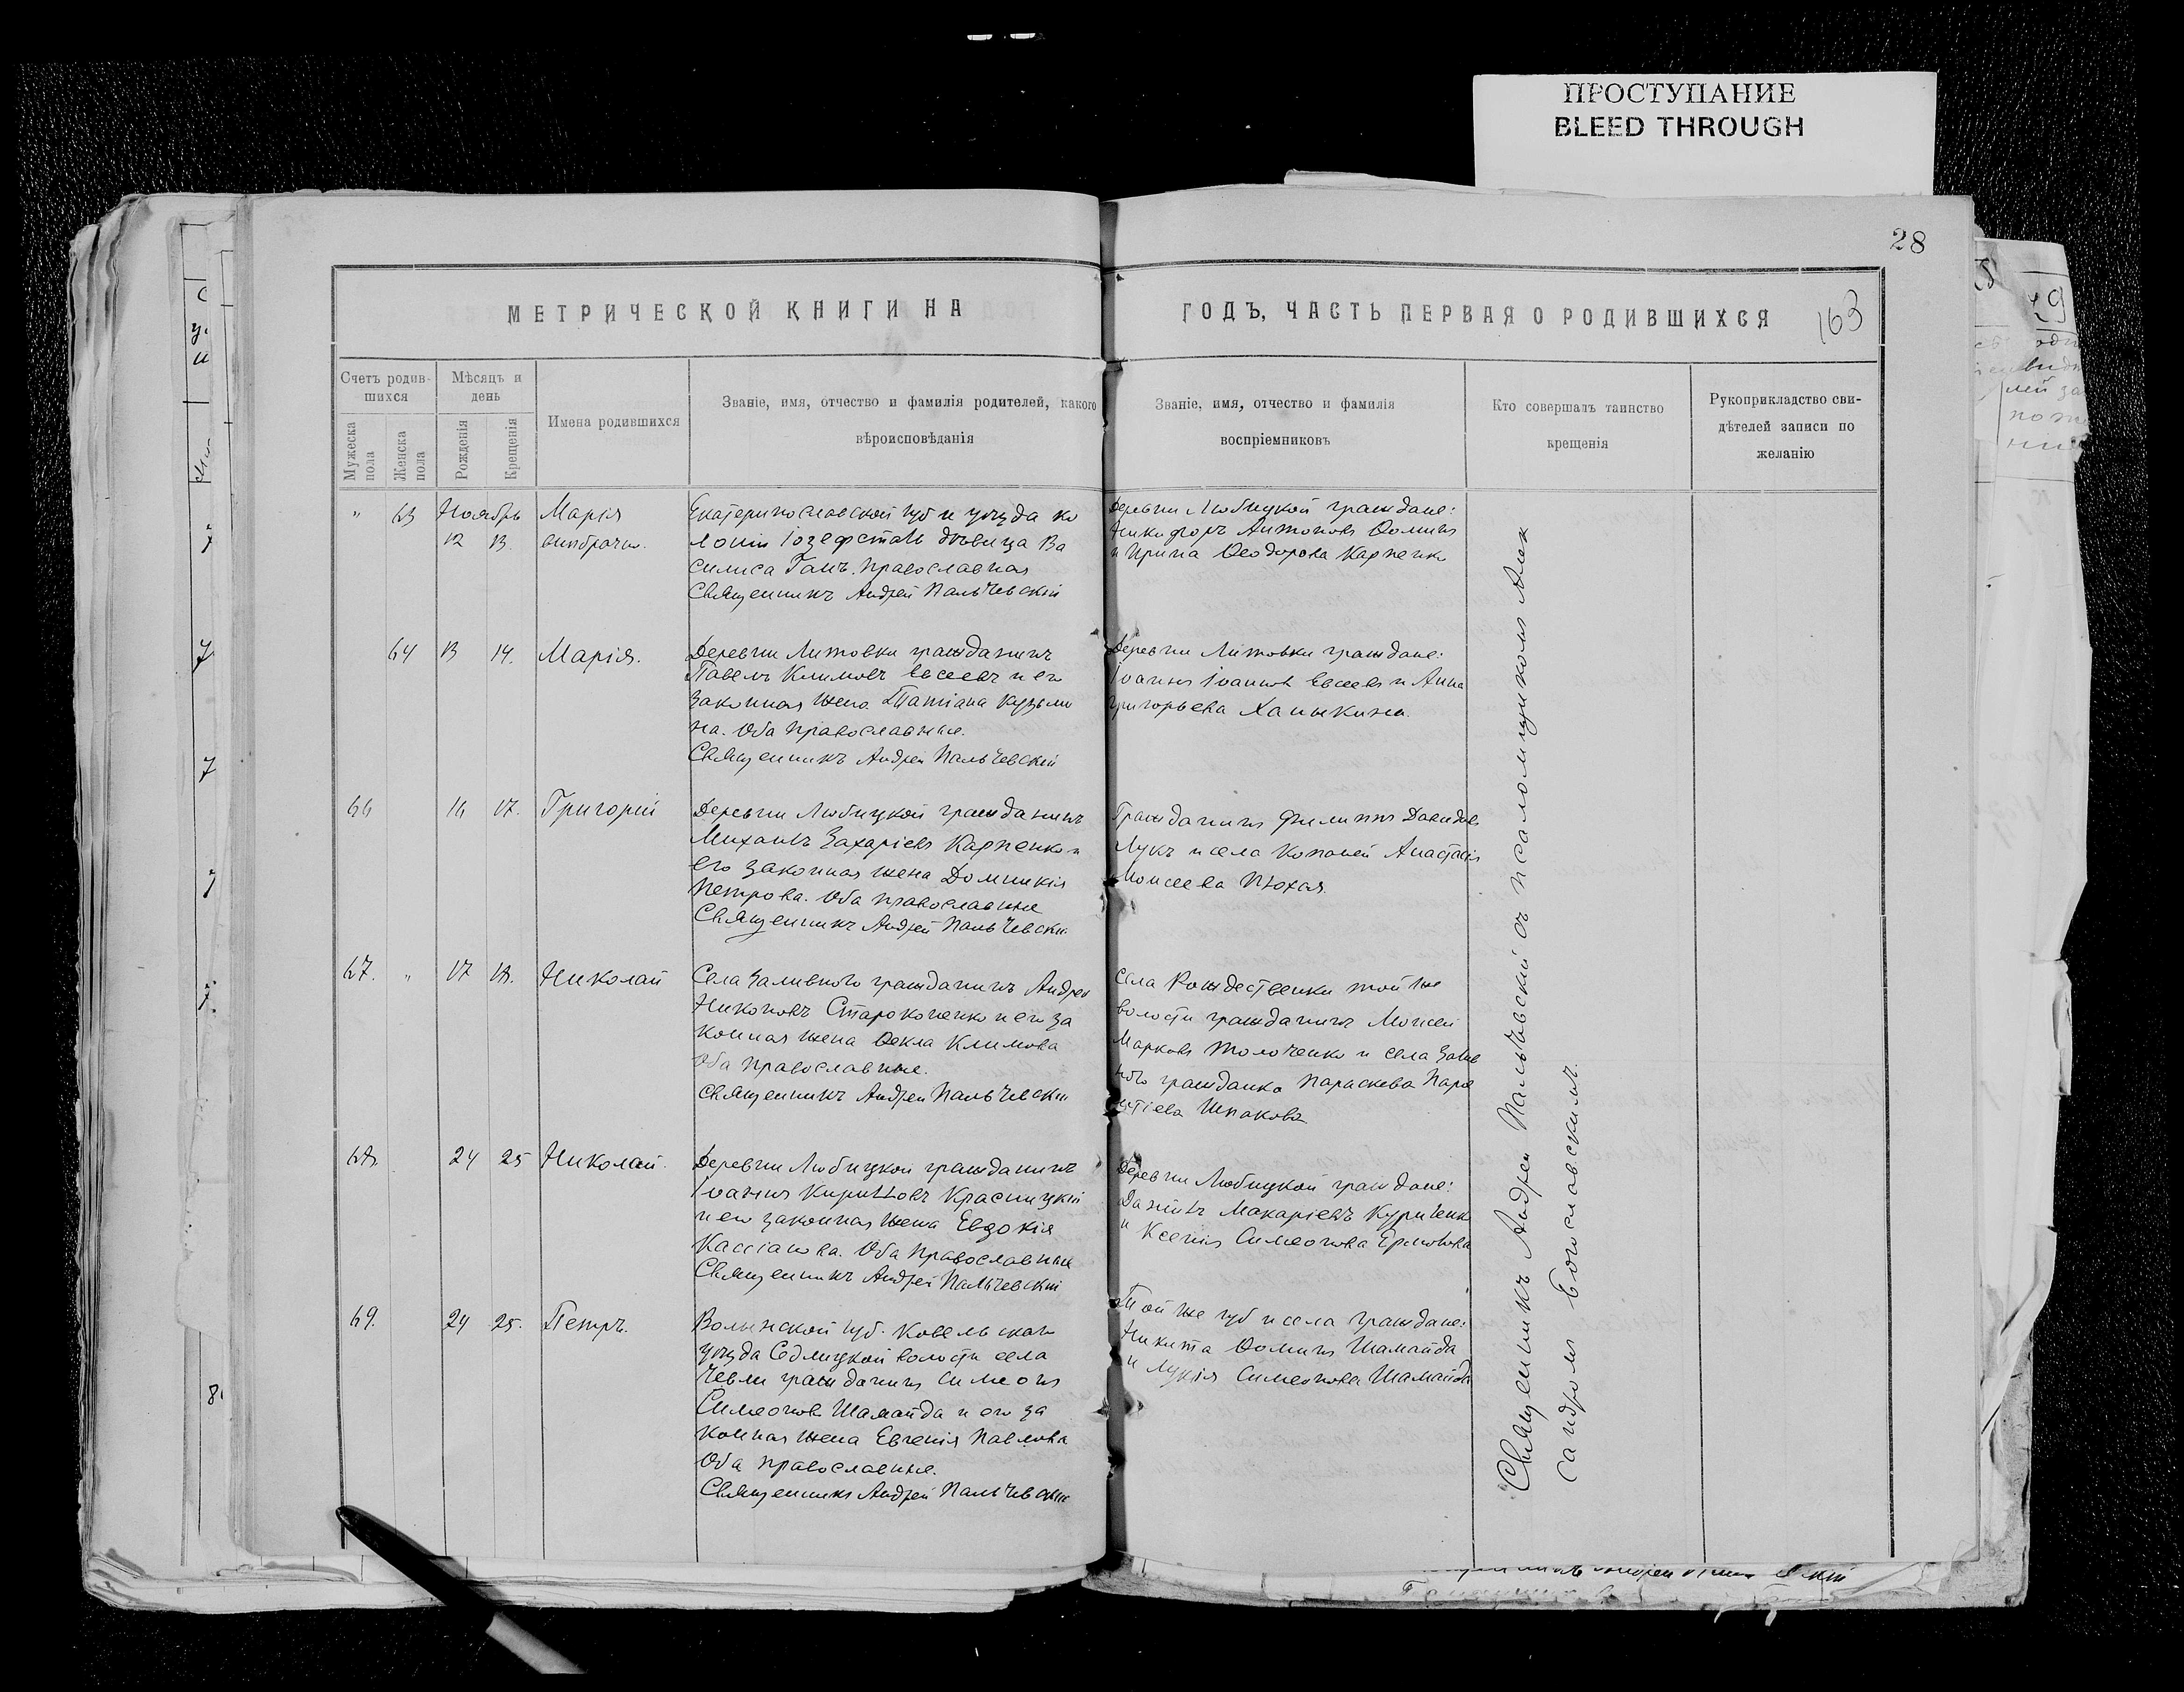 ПРОСТУПАНИЕ
BLEED THROUGH
28
163
МЕТРИЧЕСКОЙ КНИГИ НА
ГОДЪ, ЧАСТЬ ПЕРВАЯ О РОДИВШИХСЯ
Счетъ родив-
шихся
Мужеска
пола
Женска
пола
Мѣсяцъ и
день
Рожденія
Крещенія
Имена родившихся
Званіе, имя, отчество и фамилія родителей, какого
вѣроисповѣданія
Званіе, имя, отчество и фамилія
воспріемниковъ
Кто совершалъ таинство
крещенія
Рукоприкладство сви-
дѣтелей записи по
желанію
" 63 Ноябрь
12 13.
Марія
внѣбрачн.
Екатеринославской губ и уѣзда ко
лоніи Іозефсталь дѣвица Ва
силиса Ганъ. Православная
Священникъ Андрей Пальчевскій
Деревни Любицкой граждане:
Никифоръ Антоновъ Ѳоминъ
и Ирина Ѳеодорова Карпенко
64 13 14. Марія.
Деревни Литовки гражданинъ
Павелъ Климовъ Евсеевъ и его
законная жена Татіана Кузьми
на. Оба православные.
Священникъ Андрей Пальчевскій
Деревни Литовки граждане:
Іоаннъ Іоанновъ Евсеевъ и Анна
Григорьева Ханыкина.
66 16 17. Григорій
Деревни Любицкой гражданинъ
Михаилъ Захаріевъ Карпенко и
его законная жена Домникія
Петрова. Оба православные
Священникъ Андрей Пальчевскій
Гражданинъ Филиппъ Давидовъ
Лукъ и села Копаней Анастасія
Моисеева Пюхая.
67. " 17 18. Николай
Села Заливного гражданинъ Андрей
Никоновъ Староконенко и его за
конная жена Ѳекла Климова
Оба православные.
Священникъ Андрей Пальчевскій
Села Рождественки той же
волости гражданинъ Моисей
Марковъ Толоченко и села Залив
ного гражданка Параскева
Шпакова
68. 24 25 Николай.
Деревни Любицкой гражданинъ
Іоаннъ Кирилловъ Красницкій
и его законная жена Евдокія
Кассіанова. Оба православные
Священникъ Андрей Пальчевскій
Деревни Любицкой граждане:
Даніилъ Макаріевъ Куриченко
и Ксенія Симеонова Ермолова
69. 24 25. Петръ.
Волынской губ. Ковельскаго
уѣзда Седлицкой волости села
Чевли гражданинъ Симеонъ
Симеоновъ Шамайда и его за
конная жена Евгенія Павлова
Оба православные.
Священникъ Андрей Пальчевскій
Той же губ и села граждане:
Никита Ѳоминъ Шамайда
и Лукія Симеонова Шамайда
Священникъ Андрей Пальчевскій съ псаломщикомъ Алек
сандромъ Богословскимъ.